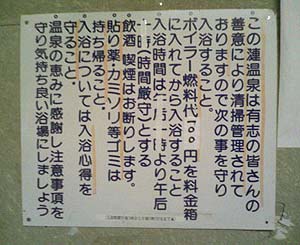 この漣温泉は有志の皆さんの
善意により清掃管理されて
おりますので次の事を守り
入浴すること。
ボイラー燃料代一〇〇円を料金箱
に入れてから入浴すること
入浴時間は 時より午後
時(時間厳守)とする
飲酒、喫煙はお断りします。
貼り薬、カミソリ等ゴミは
持ち帰ること。
入浴については入浴心得を
守ること
温泉の恵みに感謝し注意事項を
守り気持ち良い浴場にしましょう